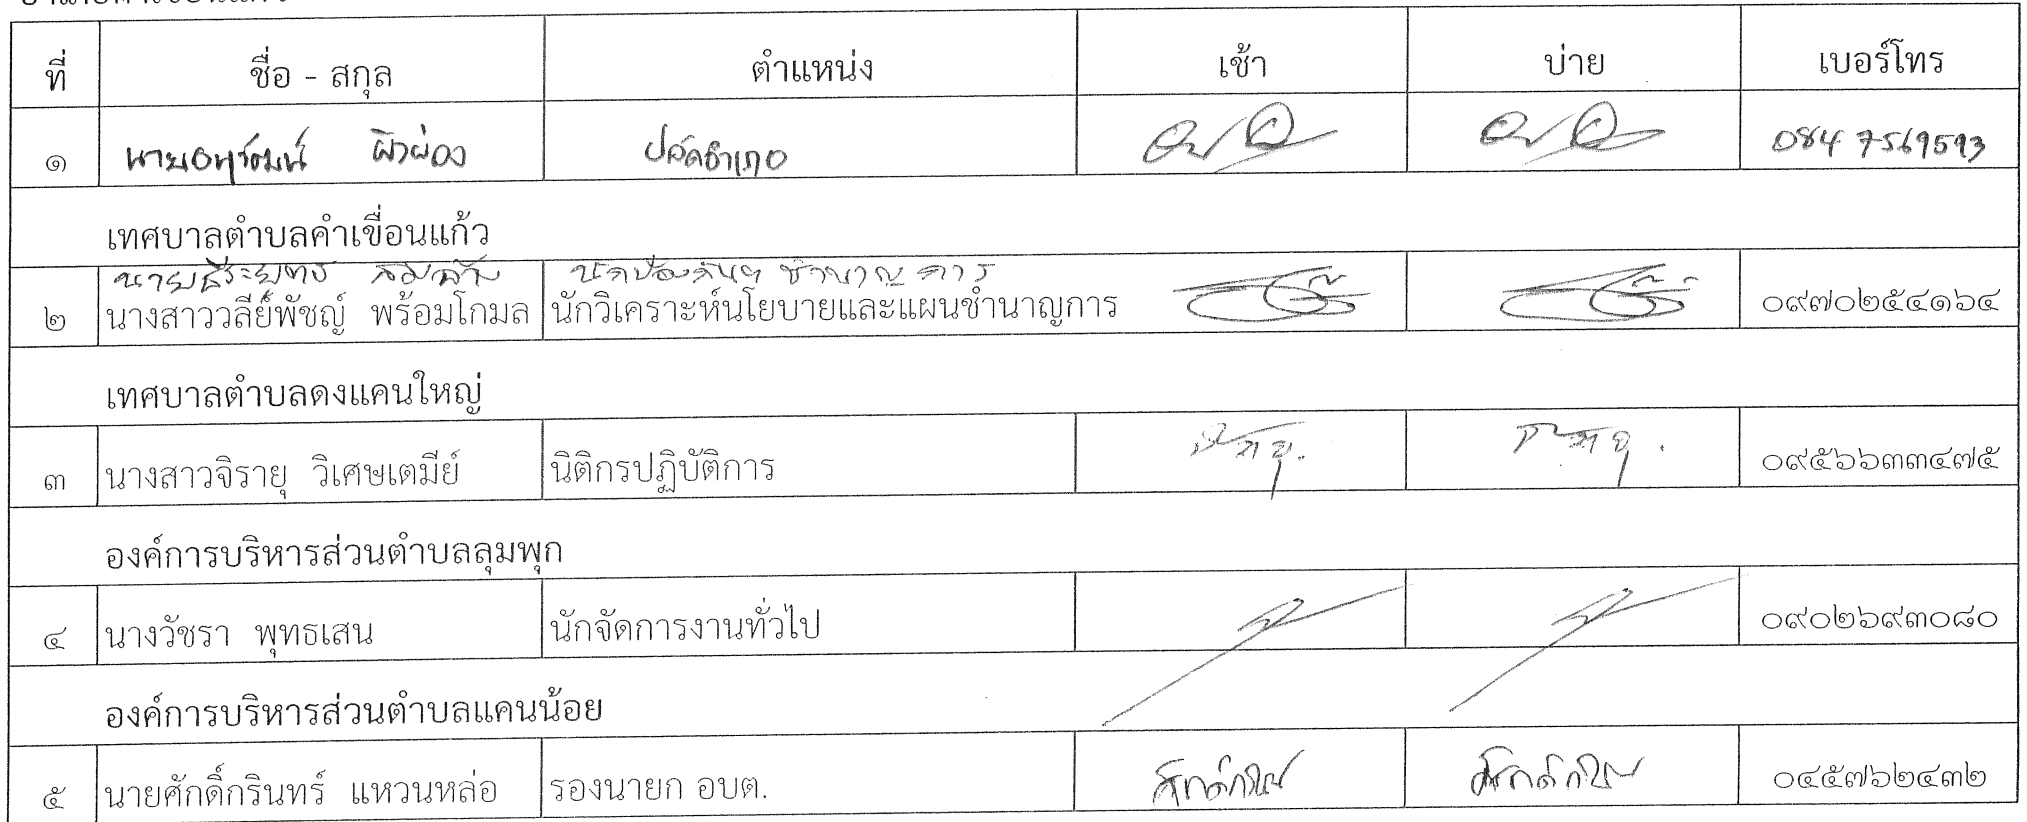 ที่ ชื่อ - สกุล ตำแหน่ง เช้า บ่าย เบอร์โทร
๑ นายอนุวัฒน์ ผิวผ่อง ปลัดอำเภอ 084 7569593
เทศบาลตำบลคำเขื่อนแก้ว
นายธีระยุทธ นักป้องกันฯ ชำนาญการ
๒ นางสาววลีย์พัชญ์ พร้อมโกมล นักวิเคราะห์นโยบายและแผนชำนาญการ ๐๙๗๐๒๕๔๑๖๔
เทศบาลตำบลดงแคนใหญ่
๓ นางสาวจิรายุ วิเศษเตมีย์ นิติกรปฏิบัติการ ๐๙๕๖๖๓๓๔๗๕
องค์การบริหารส่วนตำบลลุมพุก
๔ นางวัชรา พุทธเสน นักจัดการงานทั่วไป ๐๙๐๒๖๙๓๐๘๐
องค์การบริหารส่วนตำบลแคนน้อย
๕ นายศักดิ์กรินทร์ แหวนหล่อ รองนายก อบต. ๐๔๕๗๖๒๔๓๒